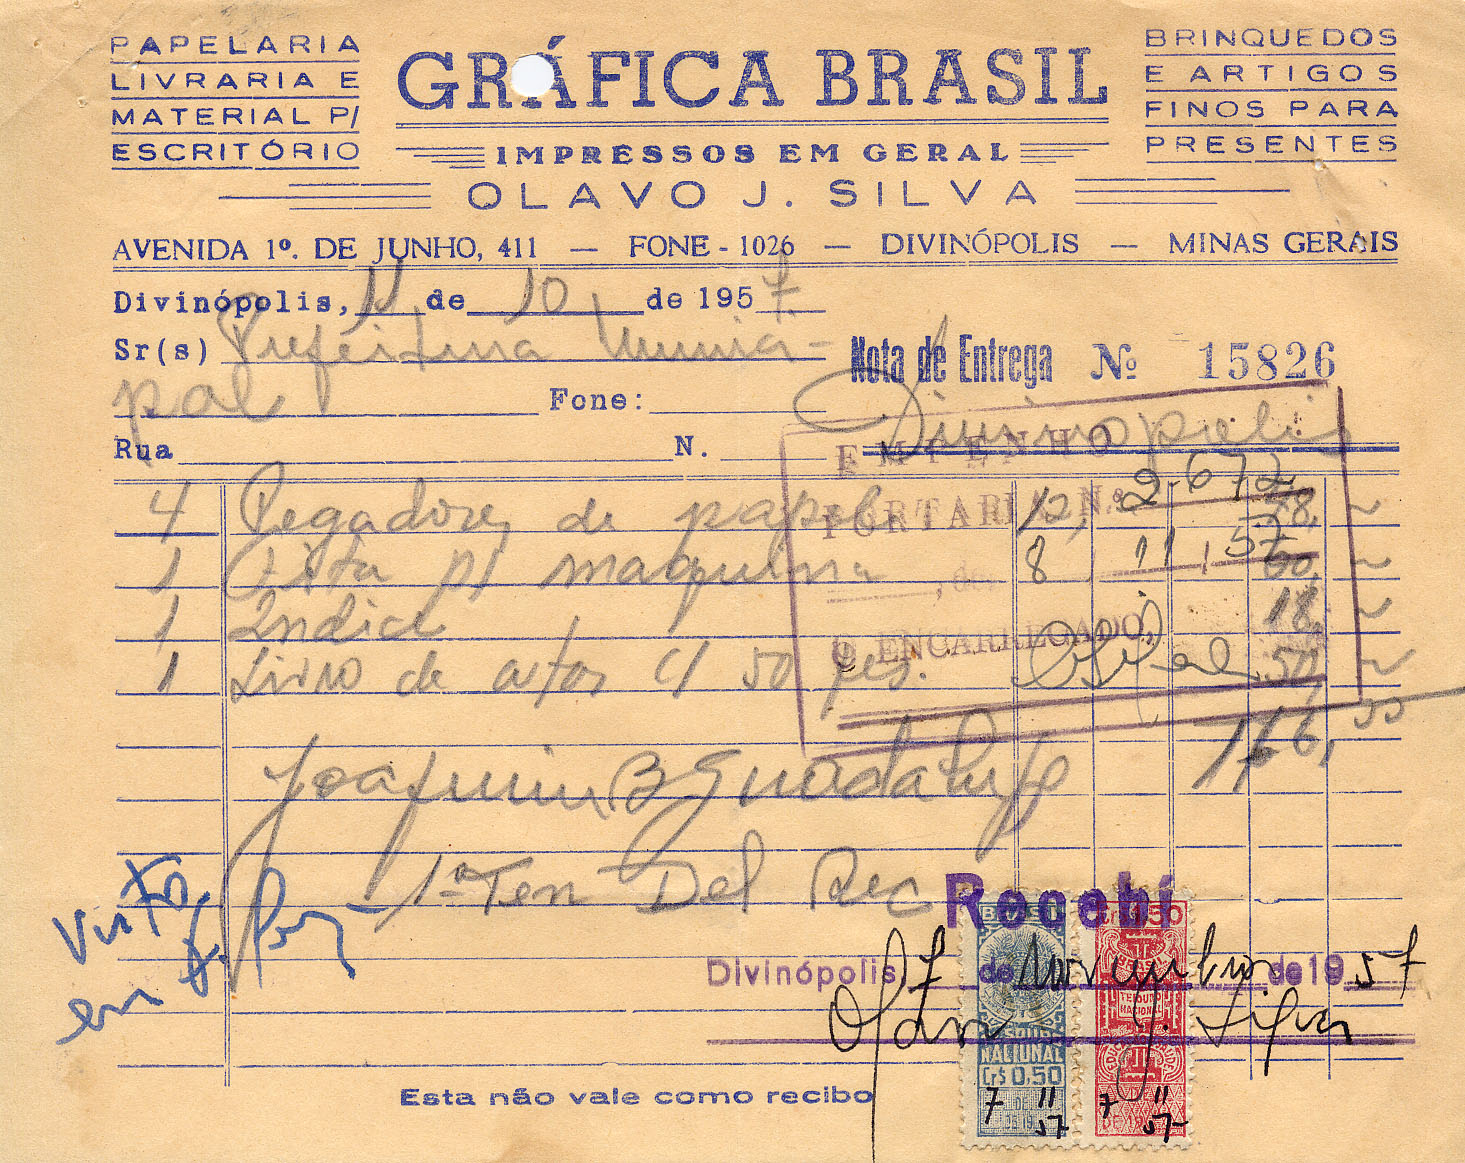 PAPELARIA
LIVRARIA E
MATERIAL P/
ESCRITÓRIO
GRÁFICA BRASIL
IMPRESSOS EM GERAL
OLAVO J. SILVA
BRINQUEDOS
E ARTIGOS
FINOS PARA
PRESENTES
AVENIDA 1º. DE JUNHO, 411 — FONE - 1026 — DIVINÓPOLIS — MINAS GERAIS
Divinópolis, 11 de 10 de 1957.
Sr(s) Prefeitura Munici-
pal Fone:
Nota de Entrega Nº 15826
Divinopolis
Rua N.
EMPENHO
PORTARIA N.º 2.672
8, 11, 57
, de
O ENCARREGADO,
4 Pegadores de papel 12, 48, ~
1 Fita p/ maquina ~
1 Indice 18, ~
1 Livro de atas c/ 50 fes. 50, ~
166,
Joaquim B Guadalupe
1º Ten Del Rec
Visto
em
Recebí
Divinópolis, 7 de novembro de 1957
Olavo J. Silva
BRASIL
TESOURO
NACIONAL
Cr$ 0,50
7 11
57
Cr$ 1,50
BRASIL
TESOURO
NACIONAL
EDUCAÇÃO SAUDE
7 11
57
Esta não vale como recibo